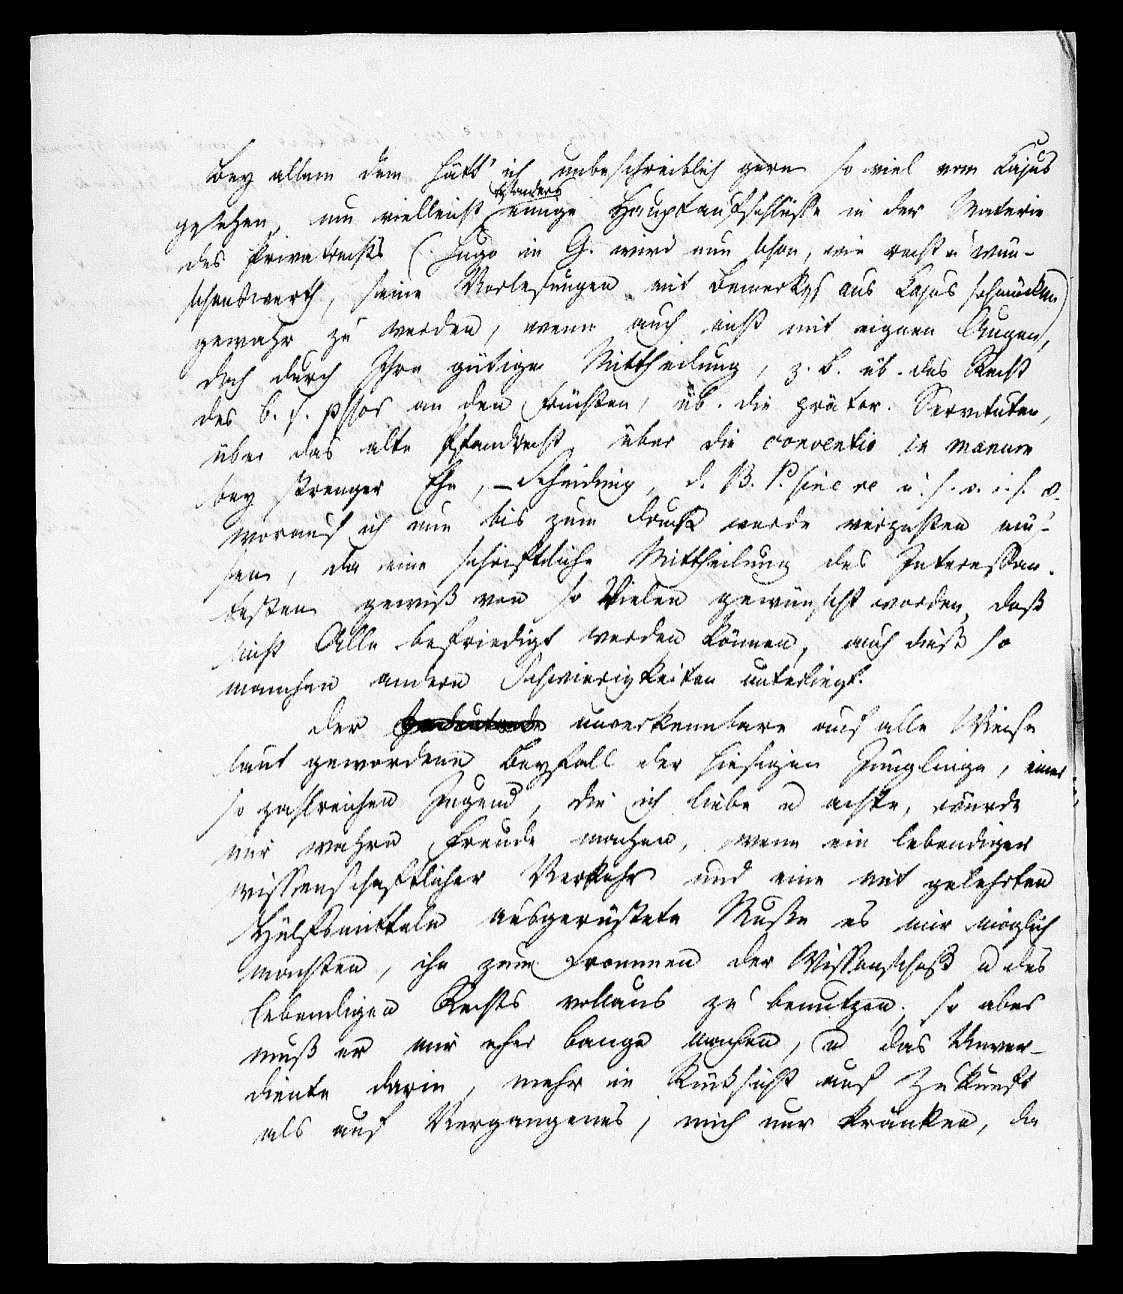 Bey allem dem hätt' ich unbeschreiblich gern so viel vom Cajus
gesehen, um vielleicht besonders einige Hauptaufschlüsse in der Materie
des Privatrechts (Hugo in G. wird nun schon, wie recht u wün-
schenswerth, seine Vorlesungen mit Bemerkgs aus Cajus schmücken)
gewahr zu werden, wenn auch nicht mit eignen Augen,
doch durch Ihre gütige Mittheilung, z. B. üb. das Recht
des b. f. pssos an den Früchten, üb. die prätor. Servituten,
über das alte Pfandrecht, über die conventio in manum
bey strenger Ehe, – Scheidung, d. B. P. sine re u. s. w. u. s. w.
worauf ich nun bis zum Druck werde verzichten müs-
sen, da eine schriftliche Mittheilung des Interessan-
testen gewiß von so Vielen gewünscht worden, daß
nicht Alle befriedigt werden können, auch dieß so
manchen andern Schwierigkeiten unterliegt.
Der unverkennbare auf alle Weise
laut gewordene Beyfall der hiesigen Jünglinge, einer
so zahlreichen Jugend, die ich liebe u achte, würde
mir wahre Freude machen, wenn ein lebendiger
wissenschaftlicher Verkehr und eine mit gelehrten
Hülfsmitteln ausgerüstete Muße es mir möglich
machten, ihn zum Frommen der Wissenschaft u des
lebendigen Rechts vollaus zu benutzen; so aber
muß er mir eher bange machen, u das Unver-
diente darin, mehr in Rücksicht auf Zukunft
als auf Vergangenes, mich nur kränken, da